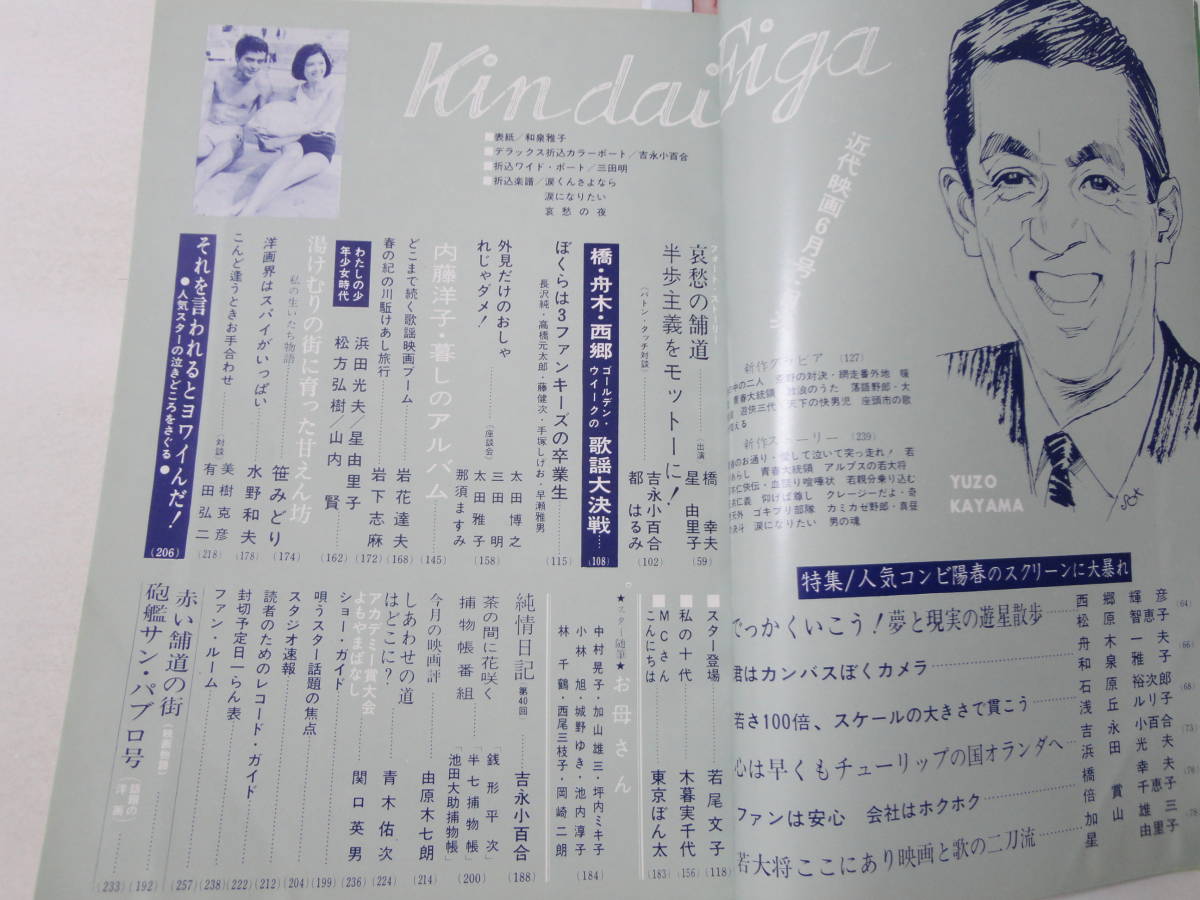 Kindai Eiga
近代映画6月号
■表紙/和泉雅子
■デラックス折込カラーポート/吉永小百合
■折込ワイド・ポート/三田明
■折込楽譜/涙くんさよなら
涙になりたい
哀愁の夜
YUZO
KAYAMA
新作グラビア (127)
の対決・網走番外地
青春大統領 放浪のうた 落語野郎・大
遊侠三代 天下の快男児 座頭市の歌
新作ストーリー (239)
のお通り 愛して泣いて突っ走れ! 若
あらし 青春大統領 アルプスの若大将
仁侠伝・血祭り喧嘩状 若親分乗り込む
仁義 仰げば尊し クレージーだよ・奇
天外 ゴキブリ部隊 カミカゼ野郎・真昼
決斗 涙になりたい 男の魂
特集/人気コンビ陽春のスクリーンに大暴れ
でっかくいこう!夢と現実の遊星散歩 西郷輝彦 松原智恵子 (64)
君はカンバスぼくカメラ 舟木一夫 和泉雅子 (66)
若さ100倍、スケールの大きさで貫こう 石原裕次郎 浅丘ルリ子 (68)
心は早くもチューリップの国オランダへ 吉永小百合 浜田光夫
ファンは安心 会社はホクホク 橋幸夫 倍賞千恵子
若大将ここにあり映画と歌の二刀流 加山雄三 星由里子
フォート・ストーリー
哀愁の舗道 (出演) 橋幸夫 星由里子 (59)
半歩主義をモットーに! (バトン・タッチ対談) 吉永小百合 都はるみ (102)
橋・舟木・西郷 ゴールデン・ウイークの 歌謡大決戦 (108)
ぼくらは3ファンキーズの卒業生 (115)
長沢純・高橋元太郎・藤健次・手塚しげお・早瀬雅男
外見だけのおしゃれじゃダメ! (座談会) 太田博之 三田明 太田雅子 那須ますみ (158)
内藤洋子・暮しのアルバム (145)
どこまで続く歌謡映画ブーム 岩花達夫 (168)
春の紀の川駈けあし旅行 岩下志麻 (172)
わたしの少年少女時代 浜田光夫/星由里子 松方弘樹/山内賢 (162)
湯けむりの街に育った甘えん坊
私の生いたち物語 笹みどり (174)
洋画界はスパイがいっぱい 水野和夫 (178)
こんど逢うときお手合わせ (対談) 美樹克彦 有田弘二 (218)
それを言われるとヨワイんだ! (206)
●人気スターの泣きどころをさぐる●
■スター登場 若尾文子 (118)
■私の十代 木暮実千代 (156)
■MCさんこんにちは 東京ぼん太 (183)
★スター随筆★ お母さん
中村晃子・加山雄三・坪内ミキ子
小林旭・城野ゆき・池内淳子
林千鶴・西尾三枝子・岡崎二朗 (184)
純情日記 第40回 吉永小百合 (188)
茶の間に花咲く捕物帳番組 「銭形平次」「半七捕物帳」「池田大助捕物帳」 (200)
今月の映画評 由原木七朗 (214)
しあわせの道はどこに? 青木佑次 (224)
アカデミー賞大会よもやまばなし 関口英男 (236)
ショー・ガイド (199)
唄うスター話題の焦点 (204)
スタジオ速報 (212)
読者のためのレコード・ガイド (222)
封切予定日一らん表 (238)
ファン・ルーム (257)
赤い舗道の街 (映画物語) (192)
砲艦サン・パブロ号 (話題の洋画) (233)